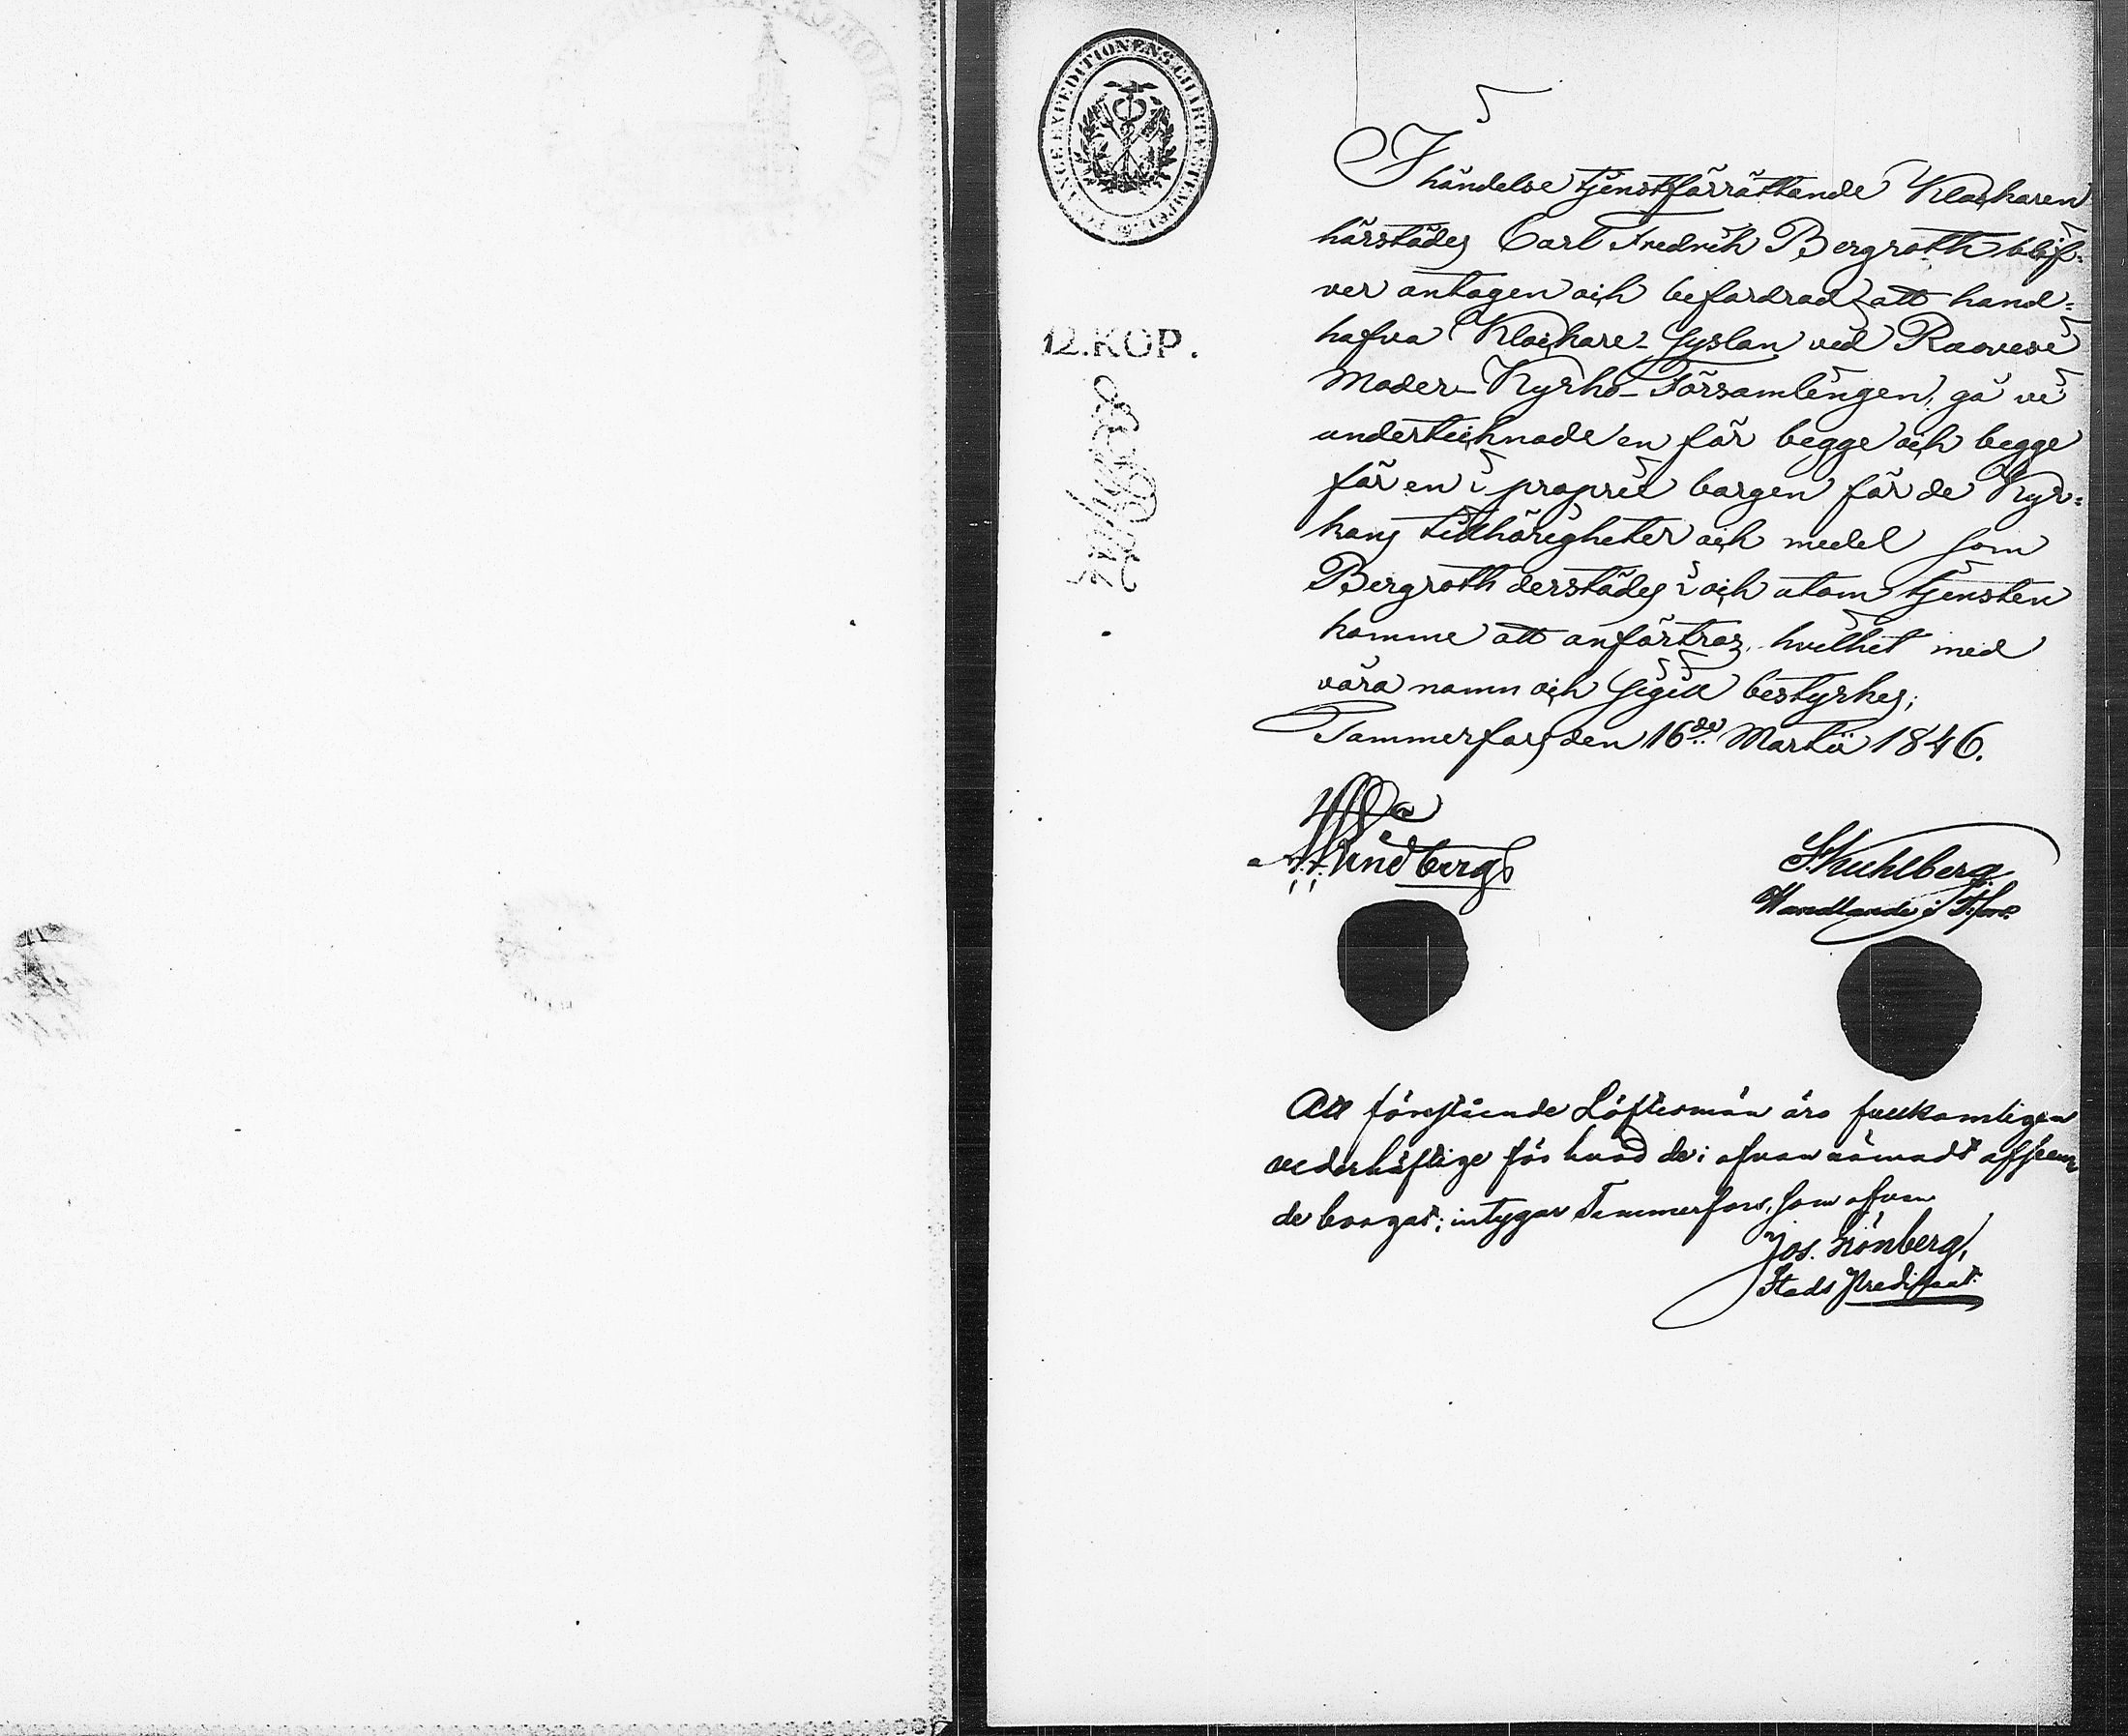 FINANCE EXPEDITIONENS CHARTÆ STEMPEL
12. KOP.
I händelse tjenstförrättande Klockaren
härstädes Carl Fredrik Bergroth blif-
ver antagen och befordrad att hand=
hafva Klockare-Syslan vid Ruovesi
Moder-Kyrko-Församlingen, gå vi
undertecknade en för begge och begge
för en i proprie borgen för de Kyr=
kans tillhörigheter och medel som
Bergroth derstädes i och utom tjensten
komme att anförtros, hvilket med
våra namn och Sigill bestyrkes;
Tammerfors den 16de Martii 1846.
Lindberg
S. Kuhlberg
Handlande i T:fors.
Att förestående Löftesmän äro fullkomligen
vederhäftige för hvad de i ofvannämndt afseen
de borgat; intygar Tammerfors, som ofvan
Jos. Grönberg,
Stads Predikant.